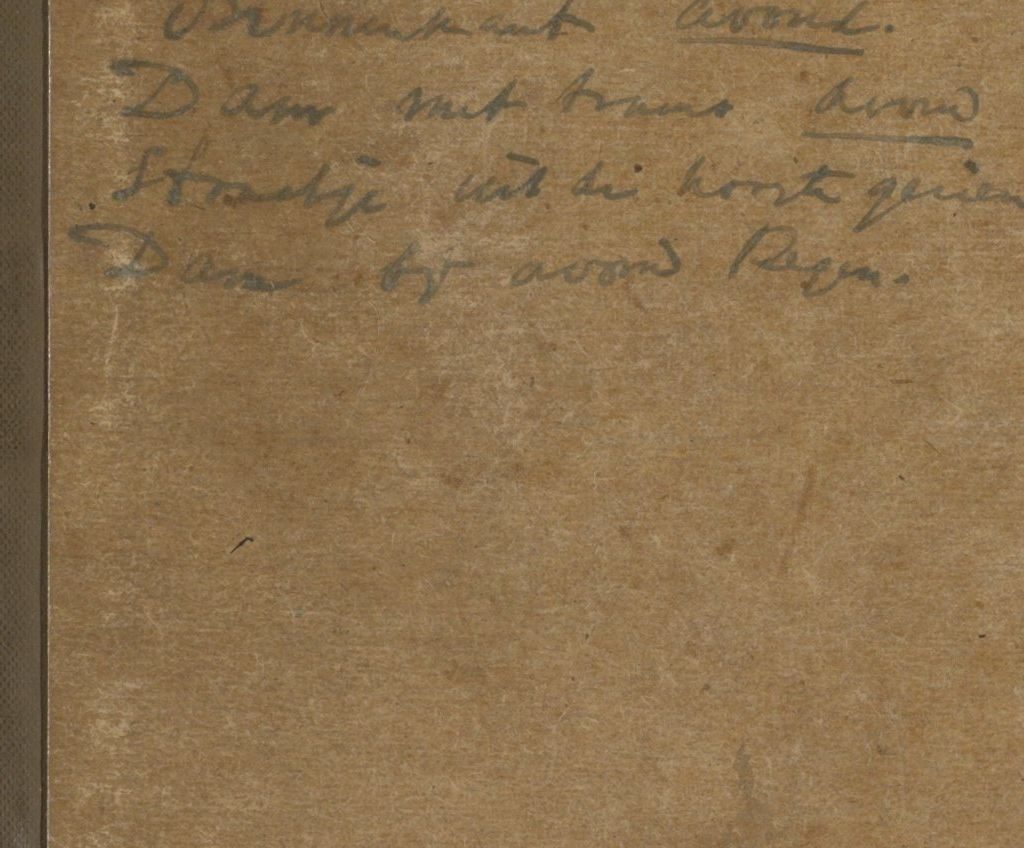 Binnenkant avond.
Dam met trams avond
Straatje uit de hoogte gezien
Dam bij avond Regen.